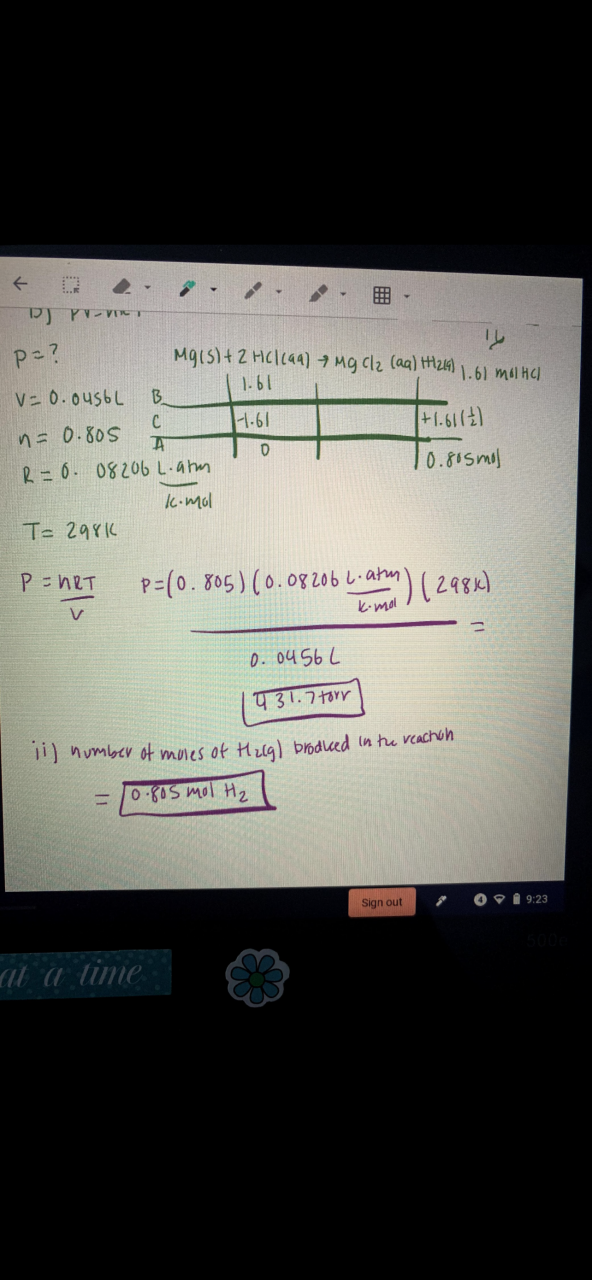 b) PV=nRT
P=?
Mg(s) + 2 HCl(aq) → MgCl2 (aq) + H2(g) 1.61 mol HCl
V= 0.0456L
B 1.61
n= 0.805
C -1.61 +1.61(1/2)
A 0 0.805mol
R= 0.08206 L·atm
K·mol
T= 298K
P = nRT
V
P=(0.805)(0.08206 L·atm/K·mol)(298K)
=
0.0456L
431.7torr
ii) number of moles of H2(g) produced in the reaction
= 0.805 mol H2
Sign out 4 9:23
500e
at a time